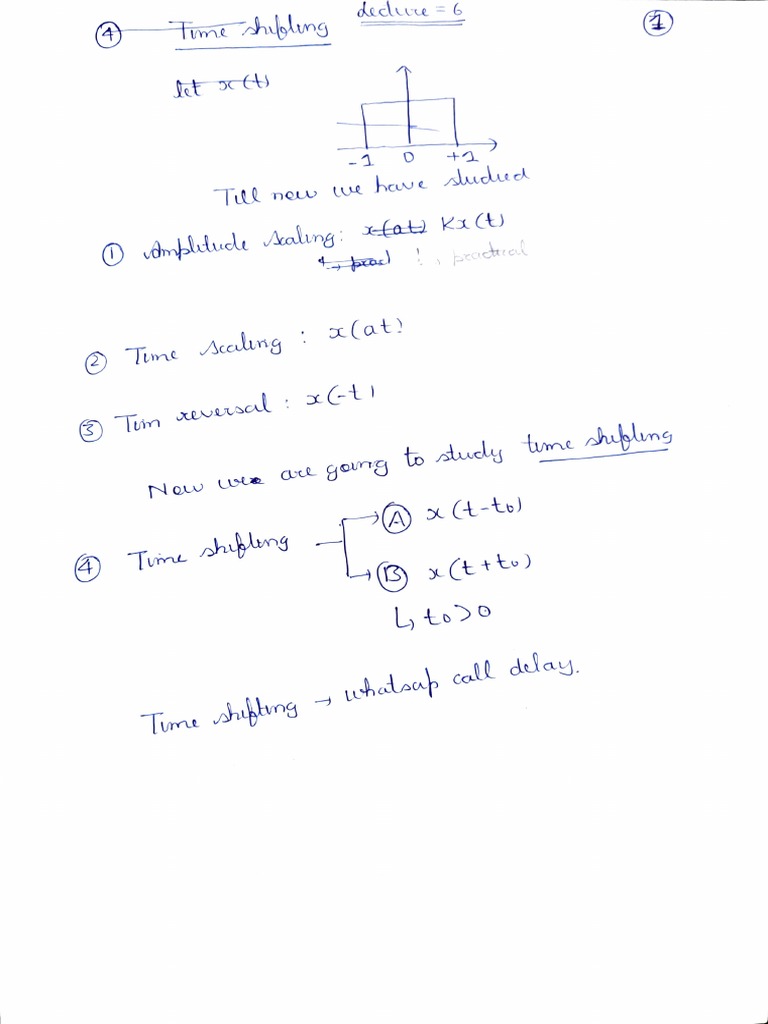 ④ Time shifting Lecture = 6 ①
let x(t)
-1 0 +1
Till now we have studied
① Amplitude scaling: x(at) Kx(t)
practical
② Time scaling : x(at)
③ Tim reversal : x(-t)
Now we are going to study time shifting
④ Time shifting → Ⓐ x(t-t0)
→ Ⓑ x(t+t0)
↳ t0>0
Time shifting → whatsap call delay.